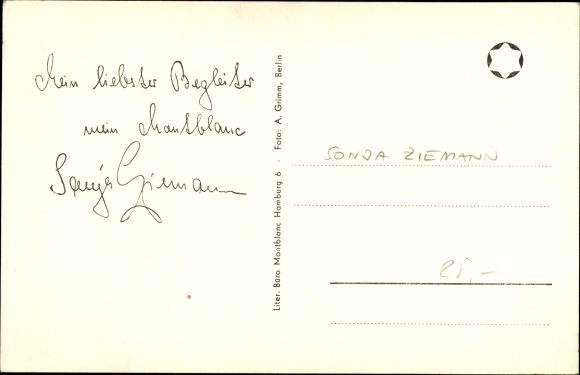 Mein liebster Begleiter
mein Montblanc
Sonja Ziemann
Liter. Büro Montblanc Hamburg 6 · Foto: A. Grimm, Berlin
SONJA ZIEMANN
25,-